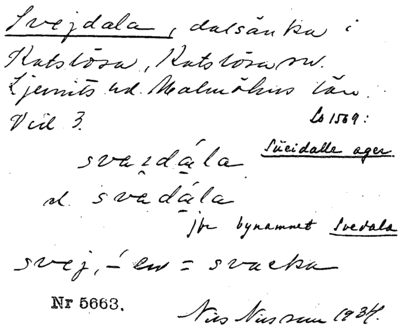 Svejdala, dalsänka i
Katslösa, Katslösa sn.
Ljunits hd. Malmöhus län.
Vid 3.
Lo 1569:
Sueidalle ager.
svai̯dála
el. svadála
jfr bynamnet Svedala
svej, -en = svacka
Nr 5663.
Nils Nilsson 1934.